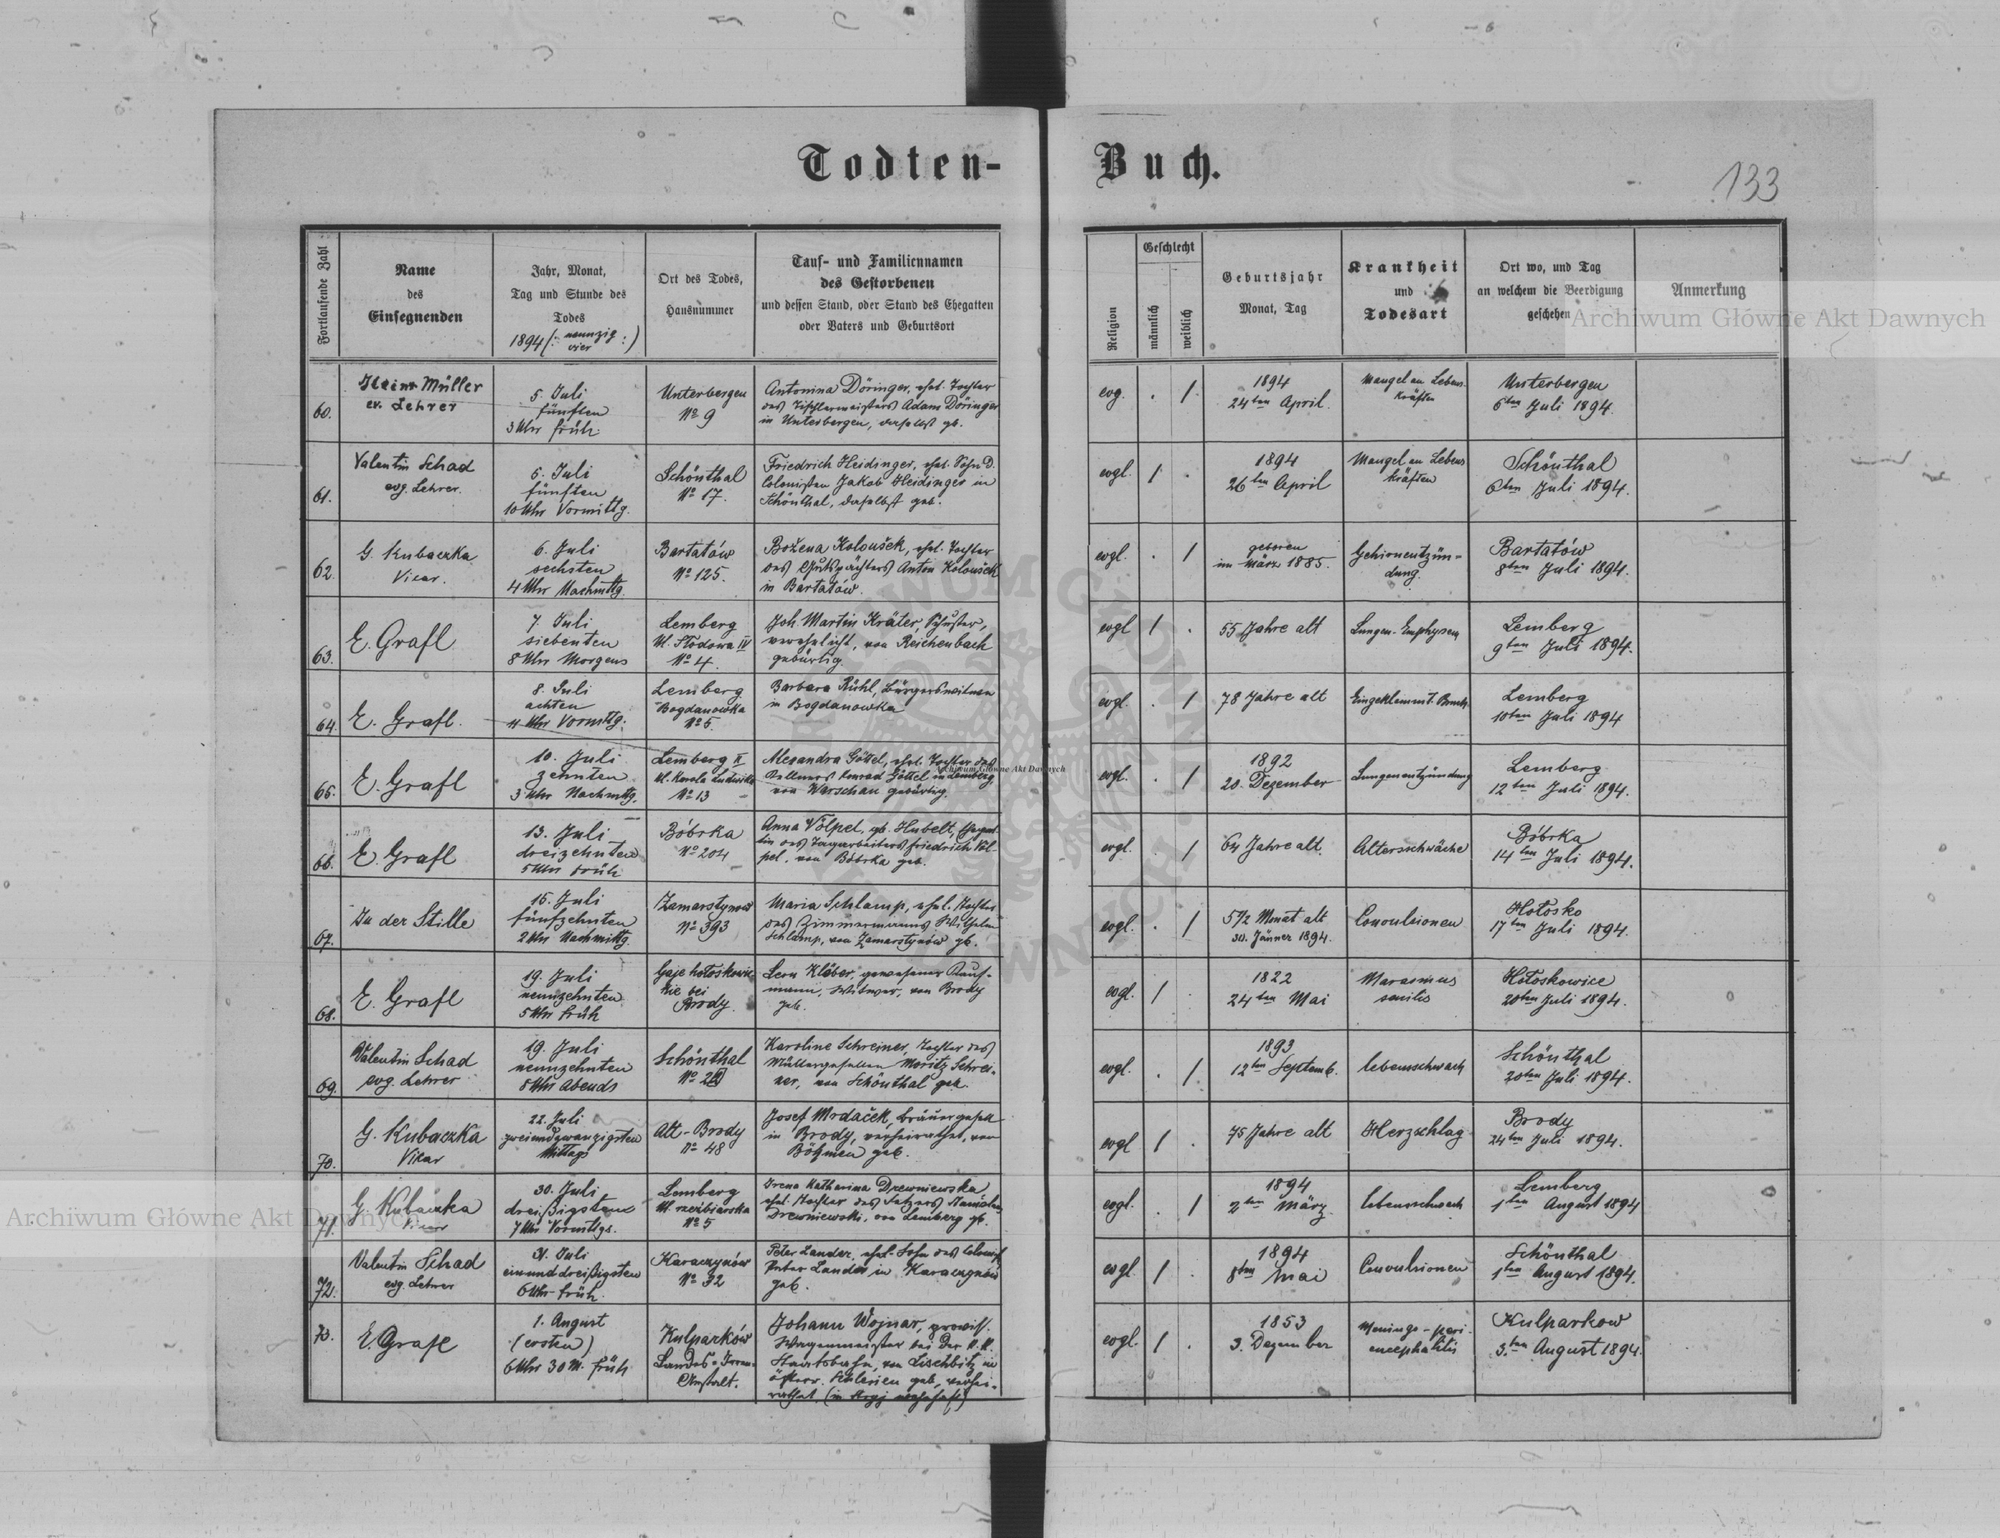 Todten-
Buch.
133
Fortlaufende Zahl
Name
des
Einsegnenden
Jahr, Monat,
Tag und Stunde des
Todes
1894 (: neunzig
vier :)
Ort des Todes,
Hausnummer
Tauf- und Familiennamen
des Gestorbenen
und dessen Stand, oder Stand des Ehegatten
oder Vaters und Geburtsort
Religion
Geschlecht
männlich
weiblich
Geburtsjahr
Monat, Tag
Krankheit
und
Todesart
Ort wo, und Tag
an welchem die Beerdigung
geschehen
Anmerkung
60.
Müller
ev. Lehrer
5. Juli
fünften
3 Uhr früh.
Unterbergen
No 9
Antonina Döringer, ehel. Tochter
des Tischlermeisters Adam Döringer
in Unterbergen, daselbst gb.
evg.
. 1
1894
24ten April.
Mangel an Lebens-
kräften
Unterbergen
6ten Juli 1894.
61.
Valentin Schad
evg. Lehrer.
Juli
fünften
10 Uhr Vormittg.
Schönthal
No 17.
Friedrich Heidinger, ehel. Sohn d.
Colonisten Jakob Heidinger in
Schönthal, daselbst geb.
evgl.
1 .
1894
26ten April
Mangel an Lebens
kräften
Schönthal
6ten Juli 1894.
62.
G. Kubaczka
Vicar.
6. Juli
sechsten
4 Uhr Nachmttg.
Bartatów
No 125.
Božena Koloušek, ehel. Tochter
des Gutspächters Anton Koloušek
in Bartatów.
evgl.
. 1
geboren
im März 1885.
Gehirnentzün-
dung.
Bartatów
8ten Juli 1894.
63.
E. Grafl
7. Juli
siebenten
8 Uhr Morgens
Lemberg
Ul. Słodowa IV
No 4.
Joh. Martin Kräter, Schuster,
verehelicht, von Reichenbach
gebürtig.
evgl
1 .
55 Jahre alt
Lungen-Emphysem
Lemberg
9ten Juli 1894.
64.
E. Grafl.
8. Juli
achten
11 Uhr Vormttg.
Lemberg
Bogdanowka
No 5.
Barbara Rühl, Bürgerswitwe
in Bogdanowka
evgl.
. 1
78 Jahre alt
Eingeklemmt. Bruch.
Lemberg
10ten Juli 1894
65.
E. Grafl
10. Juli
zehnten
3 Uhr Nachmttg.
Lemberg II
Ul. Karola Ludwika
No 13
Alexandra Göttel, ehel. Tochter des
Kellners Konrad Göttel in Lemberg,
von Warschau gebürtig.
evgl.
. 1
1892
20. Dezember
Lungenentzündung
Lemberg.
12ten Juli 1894.
66.
E. Grafl
13. Juli
dreizehnten
5 Uhr früh
Bóbrka
No 204
Anna Völpel, gb. Hubelt, Ehegat-
tin des Tagarbeiters Friedrich Völ-
pel, von Bóbrka geb.
evgl.
. 1
64 Jahre alt.
Altersschwäche
Bóbrka
14ten Juli 1894.
67.
In der Stille
15. Juli
fünfzehnten
2 Uhr Nachmittg.
Zamarstynow
No 393
Maria Schlamp, ehel. Tochter
des Zimmermanns Wilhelm
Schlamp, von Zamarstynów gb.
evgl.
. 1
5 1/2 Monat alt
30. Jänner 1894.
Convulsionen
Hołosko
17ten Juli 1894.
68.
E. Grafl
19. Juli
neunzehnten
5 Uhr früh
Gaje hołoskowie
kie bei
Brody.
Leon Kläber, gewesener Kauf-
mann, Witwer, von Brody
geb.
evgl.
1 .
1822
24ten Mai
Marasmus
senilis
Hołoskowice
20ten Juli 1894.
69
Valentin Schad
evg. Lehrer
19. Juli
neunzehnten
8 Uhr Abends
Schönthal
Karoline Schreiner, Tochter des
Müllergesellen Moritz Schrei-
ner, von Schönthal geb.
evgl.
. 1
1893
12ten Septemb.
lebensschwach
Schönthal
20ten Juli 1894.
70.
G. Kubaczka
Vikar
22. Juli
zweiundzwanzigsten
Mittags
Alt-Brody
No 48
Josef Modaček, Bräuergesell
in Brody, verheirathet, von
Böhmen geb.
evgl
1 .
75 Jahre alt
Herzschlag
Brody
24ten Juli 1894.
71.
G. Kubaczka
Vicar
30. Juli
dreißigsten
7 Uhr Vormttgs.
Lemberg
No 5
Irena Katharina Drewniewska
ehel. Tochter des Setzers
Drewniewski, von Lemberg gb.
evgl.
. 1
1894
2ten März
lebensschwach
Lemberg
1ten August 1894
72.
Valentin Schad
evg. Lehrer
31. Juli
einunddreißigsten
6 Uhr früh.
Karaczynów
No 32
Peter Lander, ehel. Sohn des Colonist.
Peter Lander in Karaczynów
geb.
evgl.
1 .
1894
8ten Mai
Convulsionen
Schönthal
1ten August 1894.
73.
E. Grafl
1. August
(ersten)
6 Uhr 30 M. früh
Kulparków
Landes-Irren-
Anstalt.
Johann Wojnar, provis.
Wagenmeister bei der k. k.
Staatsbahn, von Lischbitz in
österr. Schlesien geb., verhei-
rathet, (in Stryj wohnhaft)
evgl.
1 .
1853
3. Dezember
Meningo-peri-
encephalitis
Kulparkow
3ten August 1894.
Archiwum Główne Akt Dawnych
Archiwum Główne Akt Dawnych
Archiwum Główne Akt Dawnych